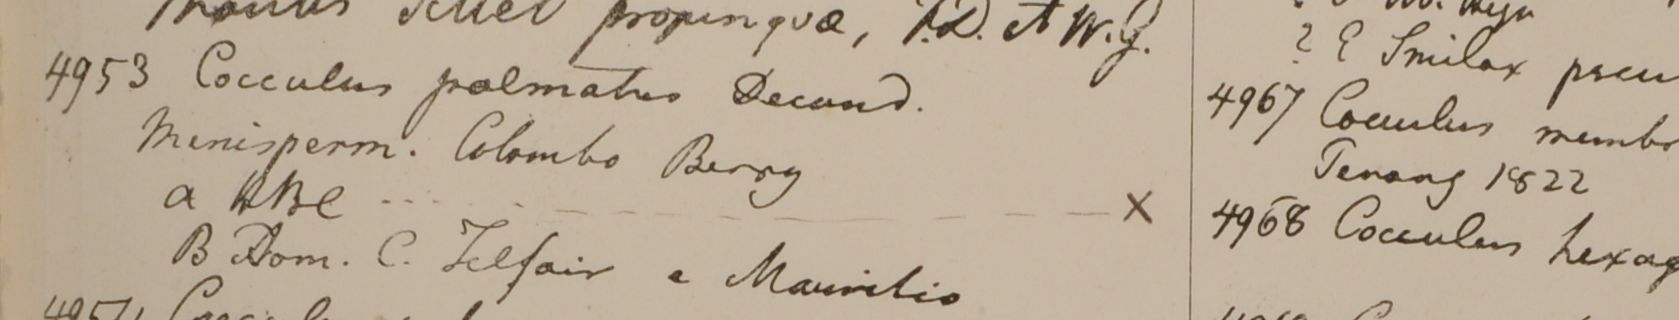 propinquæ, F.D. et W.G.
4953 Cocculus palmatus Decand.
Menisperm. Colombo Berry
a HBC ... x
B Dom. C. Telfair e Mauritio
4954 Cocculus
? E Smilax pseu
4967 Cocculus membr
Penang 1822
4968 Cocculus hexag